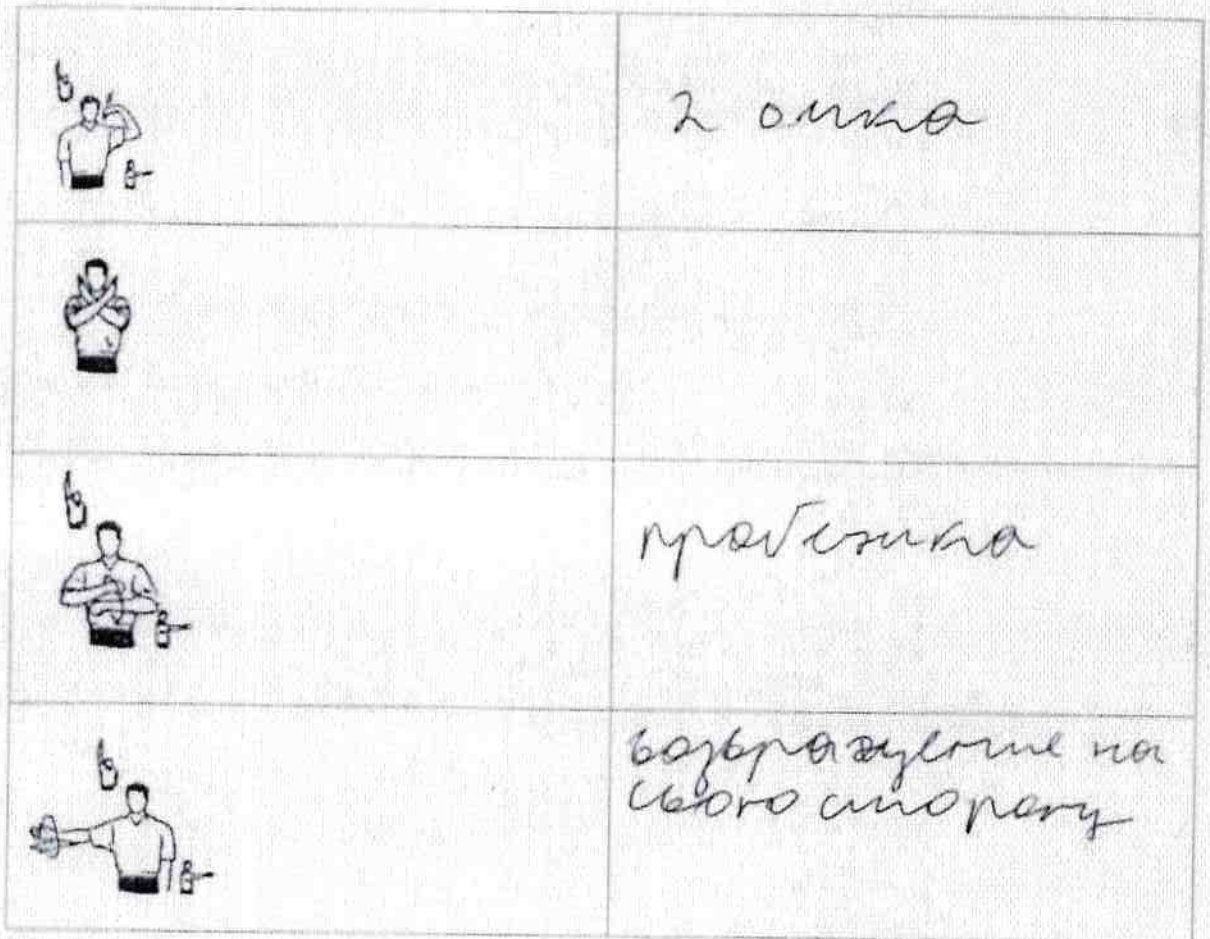 2 очка
пробежка
возвращение на
свою сторону